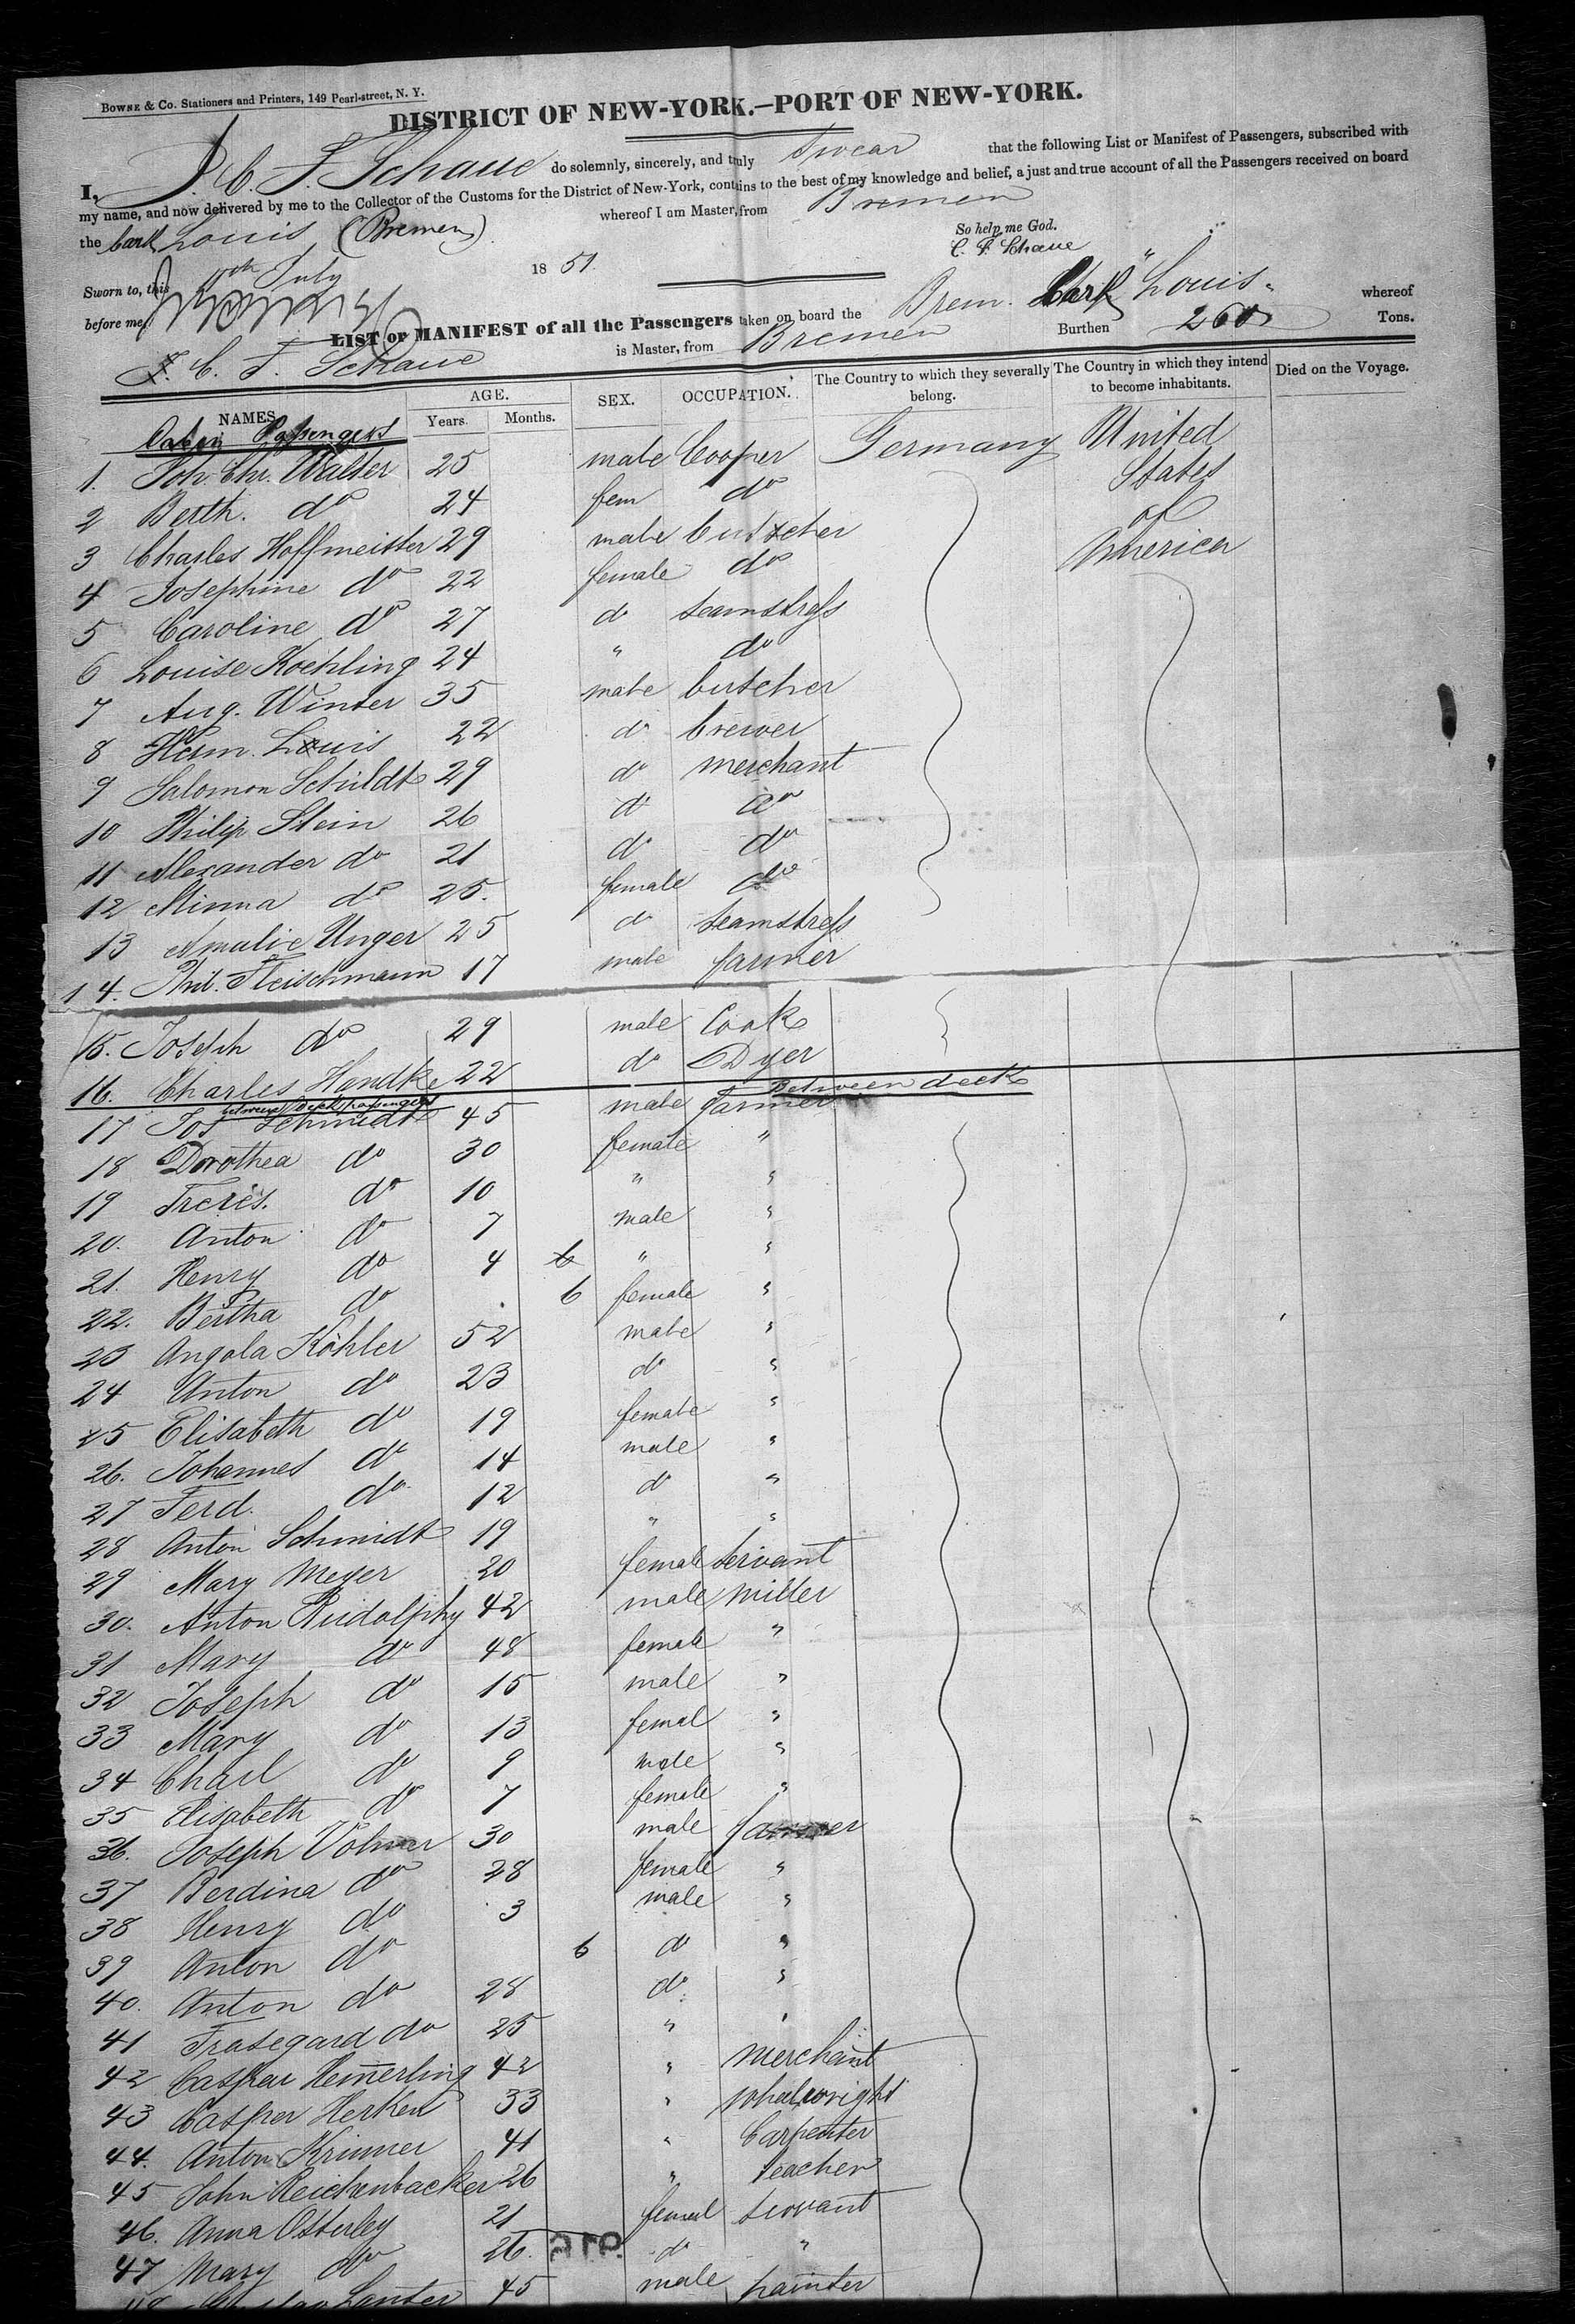 BOWNE & Co. Stationers and Printers, 149 Pearl-street, N. Y.
DISTRICT OF NEW-YORK.—PORT OF NEW-YORK.
I, J. C. F. Schaue do solemnly, sincerely, and truly swear that the following List or Manifest of Passengers, subscribed with
my name, and now delivered by me to the Collector of the Customs for the District of New-York, contains to the best of my knowledge and belief, a just and true account of all the Passengers received on board
the bark Louis (Bremen) whereof I am Master, from Bremen
So help me God.
C. F. Schaue
Sworn to, this July 1851.
before me,
LIST or MANIFEST of all the Passengers taken on board the Brem. Bark "Louis" whereof
J. C. F. Schaue is Master, from Bremen Burthen 260 Tons.
NAMES. AGE. Years. Months. SEX. OCCUPATION. The Country to which they severally belong. The Country in which they intend to become inhabitants. Died on the Voyage.
Cabin Passengers
1. Joh. Chr. Walter 25 male Cooper Germany United
2 Berth. do 24 fem do States
3 Charles Hoffmeister 29 male butcher of
4 Josephine do 22 female do America
5 Caroline do 27 do seamstress
6 Louise Koehling 24 " do
7 Aug. Winter 35 male butcher
8 Herm. Louis 22 do brewer
9 Salomon Schildt 29 do merchant
10 Philip Stein 26 do do
11 Alexander do 21 do do
12 Minna do 25. female do
13 Amalie Unger 25 do seamstress
14. Phil. Fleischmann 17 male farmer
15. Joseph do 29 male Cook
16. Charles Handke 22 do Dyer
between deck passengers Between deck
17 Jos Schmidt 45 male farmer
18 Dorothea do 30 female "
19 Treres. do 10 " "
20. Anton do 7 male "
21. Henry do 4 " "
22. Bertha do 6 female "
23 Angola Köhler 52 male "
24 Anton do 23 do "
25 Elisabeth do 19 female "
26. Johannes do 14 male "
27 Ferd. do 12 do "
28 Anton Schmidt 19 " "
29 Mary Meyer 20 female servant
30. Anton Rudolphy 42 male miller
31 Mary do 48 female "
32 Joseph do 15 male "
33 Mary do 13 femal "
34 Charl do 9 male "
35 Elisabeth do 7 female "
36. Joseph Volmer 30 male farmer
37 Berdina do 28 female "
38 Henry do 3 male "
39 Anton do 6 do "
40. Anton do 28 do "
41 Frasegard do 25 " "
42 Caspar Hemerling 42 " merchant
43 Casper Herken 33 " whelwright
44. Anton Krimmer 41 " Carpenter
45 John Reichenbacker 26 " teacher
46. Anna Osterley 21 femal servant
47 Mary do 26. do "
45 male painter